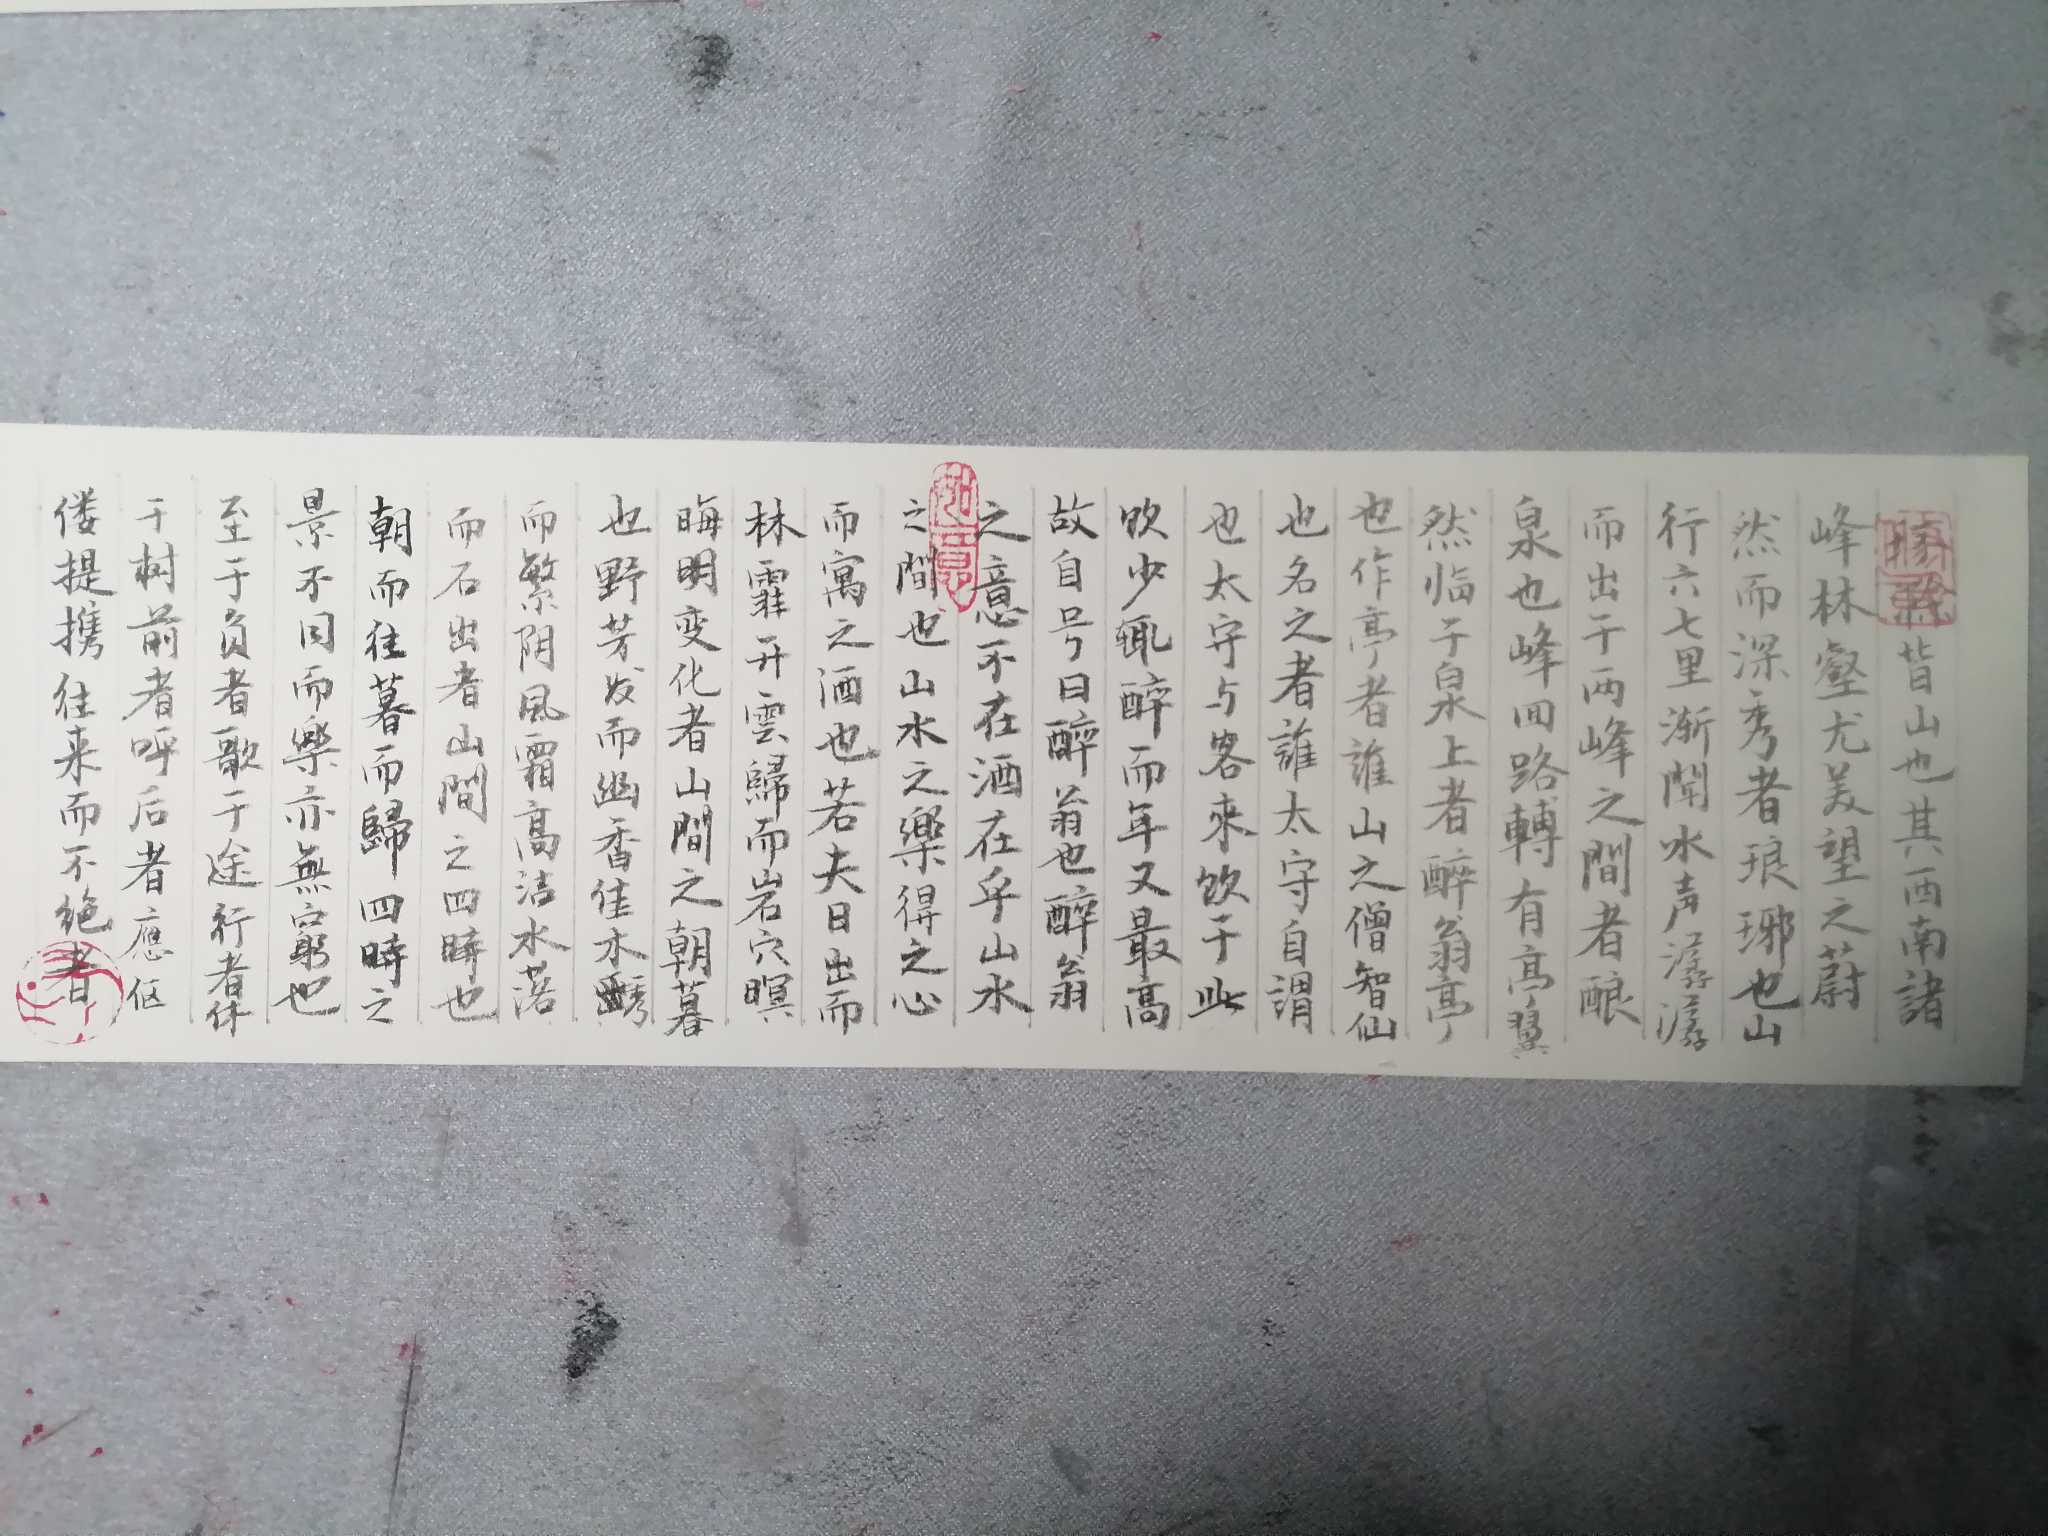 環滁皆山也其西南諸
峰林壑尤美望之蔚
然而深秀者琅琊也山
行六七里渐闻水声潺潺
而出于两峰之間者酿
泉也峰回路轉有亭翼
然临于泉上者醉翁亭
也作亭者誰山之僧智仙
也名之者誰太守自謂
也太守与客来饮于此
饮少辄醉而年又最高
故自号曰醉翁也醉翁
之意不在酒在乎山水
之間也山水之樂得之心
而寓之酒也若夫日出而
林霏开雲歸而岩穴暝
晦明变化者山間之朝暮
也野芳发而幽香佳木秀
而繁阴風霜高洁水落
而石出者山間之四時也
朝而往暮而歸四時之
景不同而樂亦無窮也
至于负者歌于途行者休
于树前者呼后者應伛
偻提携往来而不绝者